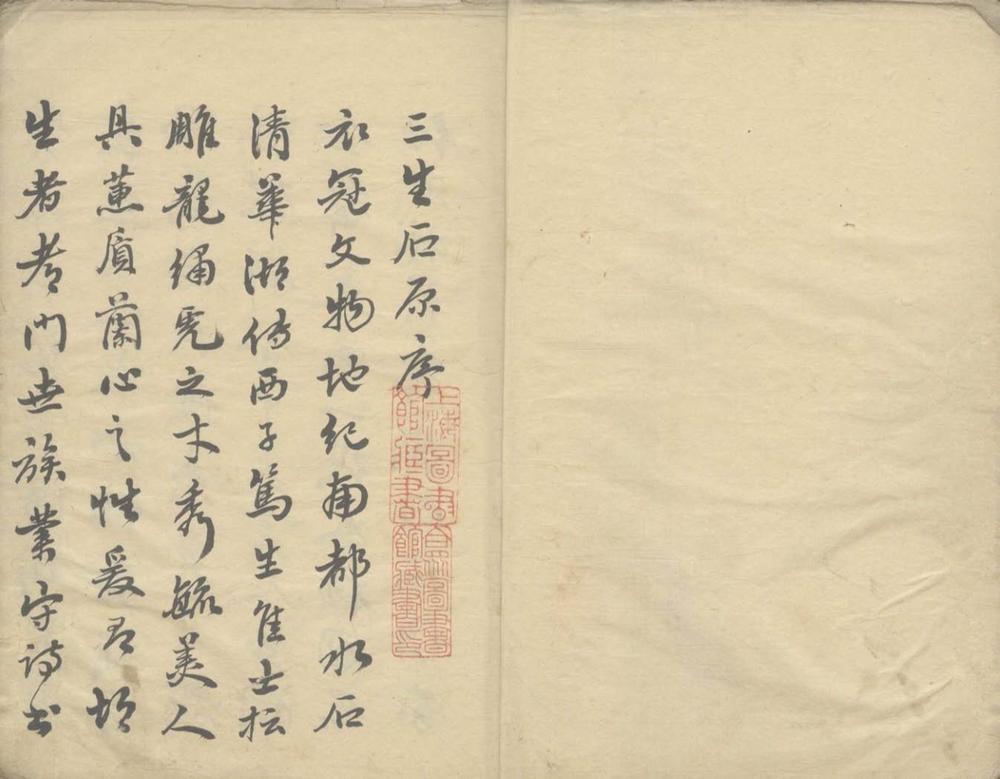 三生石原序
衣冠文物地紀南都水石
清華湖傳西子篤生佳士擅
雕龍繡虎之才秀毓美人
具蕙質蘭心之性爰有胡
生者者門世族業守詩書
上海圖書館藏書